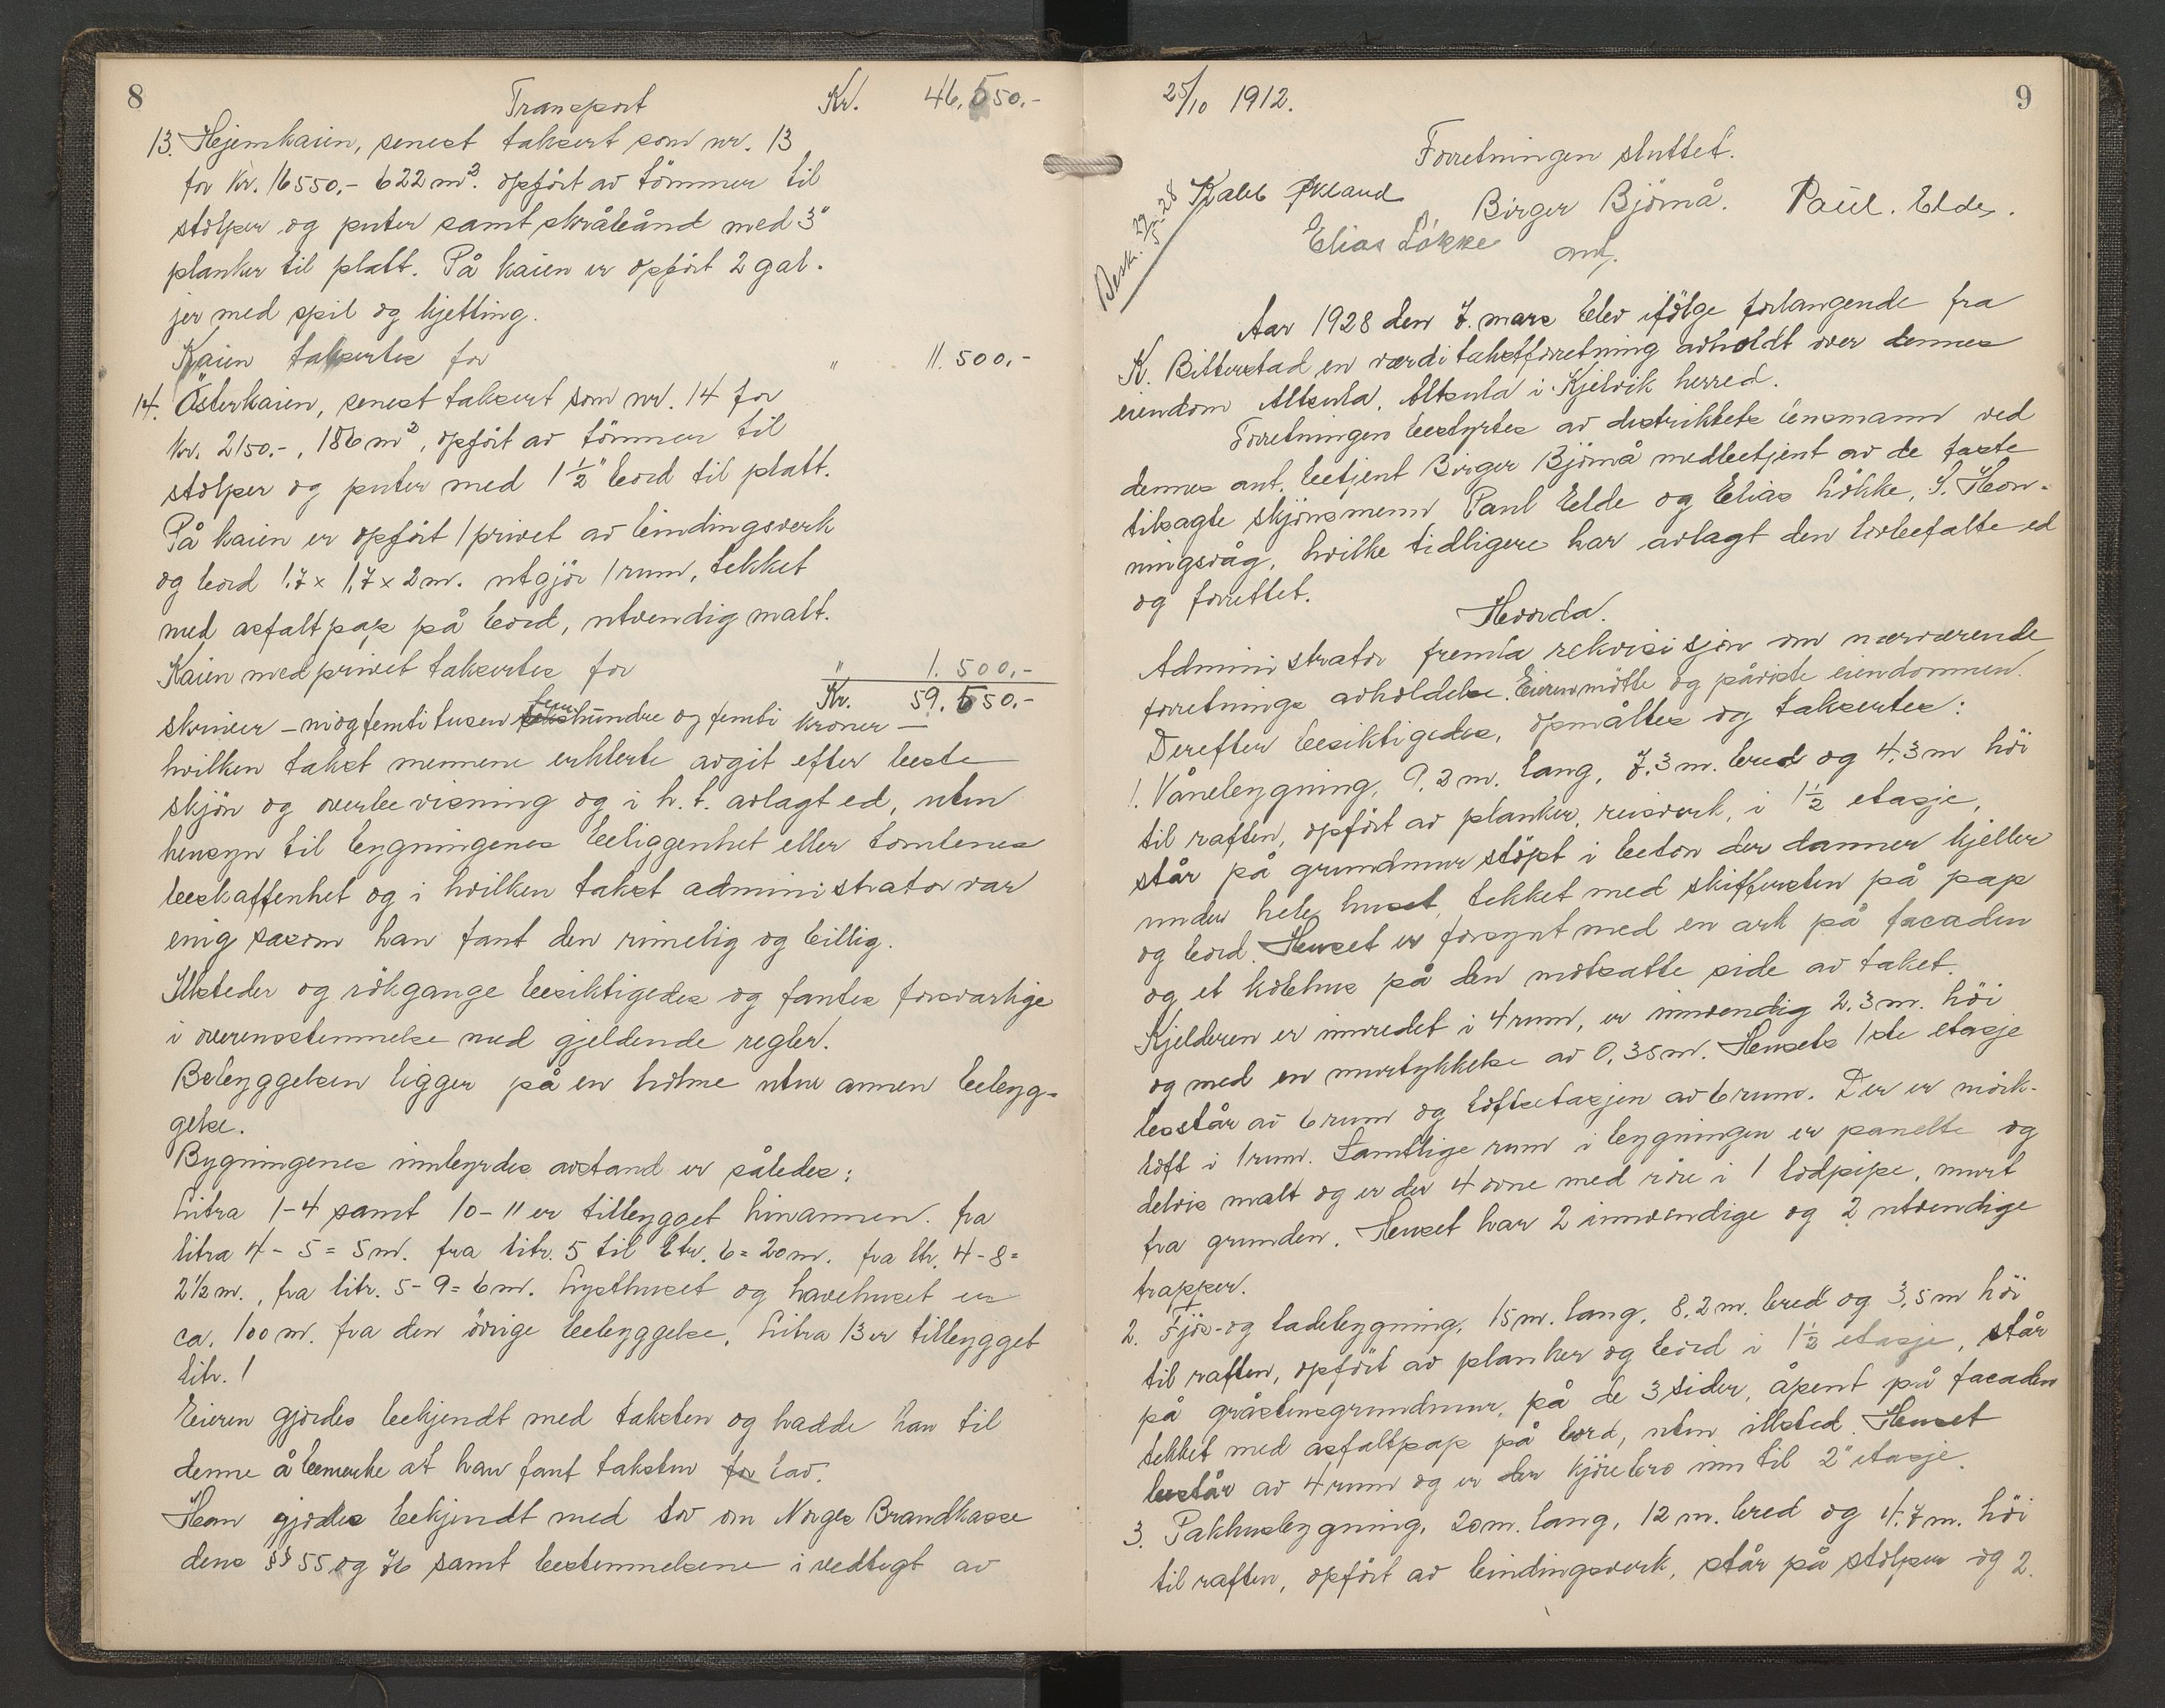 8
Transport Kr. 46.550.-
13. Hjemkaien, senest taksert som nr. 13
for kr. 16550.- 622 m². opført av tömmer til
stolper og puter samt skråbånd med 3"
planker til platt. På kaien er opført 2 gal-
jer med spil og kjetting.
Kaien takseres for " 11.500.-
14. Österkaien, senest taksert som nr. 14 for
kr. 2150.-, 186 m², opført av tömmer til
stolper og puter med 1 1/2" bord til platt.
På kaien er opført 1 privet av bindingsverk
og bord 1,7 x 1,7 x 2 m. utgjör 1 rum, tekket
med asfaltpap på bord, utvendig malt.
Kaien med privet takseres for " 1.500.-
Kr. 59.550.-
skriver - niogfemti tusen seks fem hundre og femti kroner -
hvilken takst mennene erklerte avgit efter beste
skjön og overbevisning og i h. t. avlagt ed, uten
hensyn til bygningenes beliggenhet eller tomtenes
beskaffenhet og i hvilken takst administrator var
enig såsom han fant den rimelig og billig.
Ildsteder og rökgange besiktigedes og fantes forsvarlige
i overensstemmelse med gjeldende regler.
Bebyggelsen ligger på en holme uten annen bebyg-
gelse.
Bygningenes innbyrdes avstand er således:
Litra 1-4 samt 10-11 er tilbygget hinannen. fra
litra 4 - 5 = 5 m. fra litr. 5 til ltr. 6 = 20 m. fra ltr. 4 - 8 =
2 1/2 m., fra litr. 5 - 9 = 6 m. Lysthuset og havehuset er
ca. 100 m. fra den övrige bebyggelse. Litra 13 er tilbygget
litr. 1
Eieren gjordes bekjendt med taksten og hadde han til
denne å bemerke at han fant taksten for lav.
Han gjordes bekjendt med lov om Norges Brandkasse
dens §§ 55 og 76 samt bestemmelsene i vedtegt av
9
25/10 1912.
Forretningen sluttet.
Besk. 29/5-28 Kaleb Birger Björnå. Paul. Elde.
Elias Løkke ant.
Aar 1928 den 7. mars blev ifölge forlangende fra
K. Bitterstad en værditakstforretning avholdt over dennes
eiendom Altsula. Altsula i Kjelvik herred.
Forretningen bestyrtes av distriktets lensmann ved
dennes ant. betjent Birger Björnå medbetjent av de faste
tilsagte skjönsmenn Paul Elde og Elias Lökke, S. Hon-
ningsvåg, hvilke tidligere har avlagt den lovbefalte ed
og forrettet.
Hvorda.
Administrator fremla rekvisisjon om nærværende
forretnings avholdelse. Eieren mötte og påviste eiendommen.
Derefter besiktigedes, opmåltes og taksertes:
1. Vånebygning, 9,2 m. lang, 7,3 m. bred og 4,3 m höi
til raften, opfört av planker, reisverk, i 1 1/2 etasje,
står på grundmur stöpt i beton der danner kjeller
under hele huset, tekket med skiffersten på pap
og bord. Huset er forsynt med en ark på facaden
og et kvisthus på den motsatte side av taket.
Kjelderen er innredet i 4 rum, er innvendig 2,3 m. höi
og med en murtykkelse av 0,35 m. Husets 1ste etasje
består av 6 rum og loftsetasjen av 6 rum. Der er mörk-
loft i 1 rum. Samtlige rum i bygningen er panelte og
delvis malt og er der 4 ovne med rör i 1 lodpipe, murt
fra grunden. Huset har 2 innvendige og 2 utvendige
trapper.
2. Fjös- og ladebygning, 15 m. lang, 8,2 m. bred og 3,5 m höi
til raften, opfört av planker og bord i 1 1/2 etasje, står
på gråstensgrundmur, på de 3 sider, åpent på facaden
tekket med asfaltpap på bord, uten ildsted. Huset
består av 4 rum og er der kjörebro inn til 2" etasje.
3. Pakhusbygning, 20 m. lang, 12 m. bred og 4,7 m. höi
til raften, opfört av bindingsverk, står på stolper og 2.